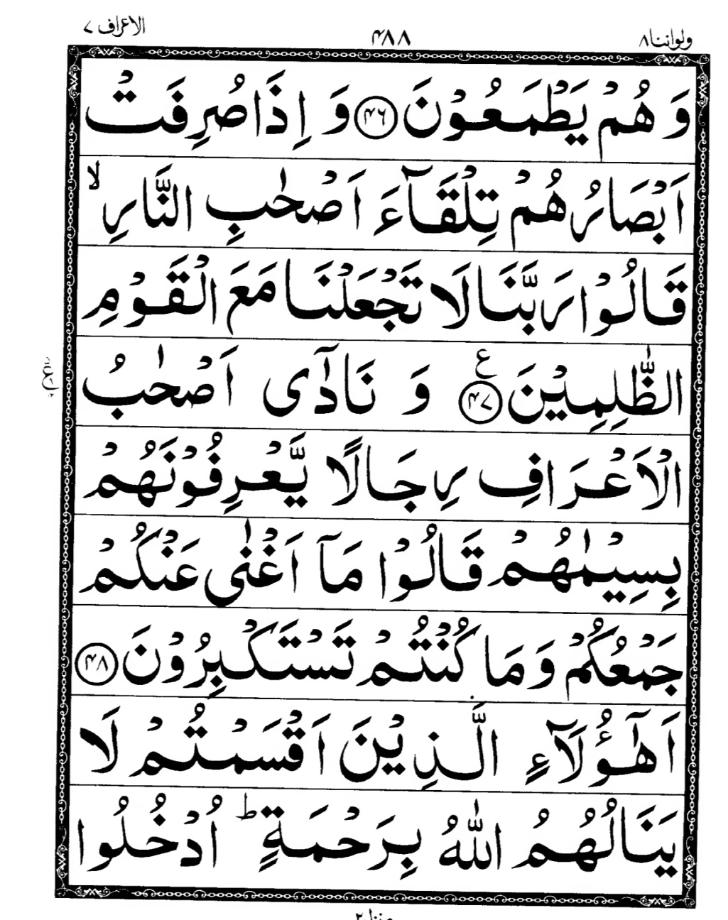 ولواننا ۸ ۴۸۸ الاعراف ۷
وَ هُمْ يَطْمَعُوْنَ ﴿۴۶﴾ وَ اِذَا صُرِفَتْ
اَبْصَارُهُمْ تِلْقَآءَ اَصْحٰبِ النَّارِ ۙ
قَالُوْا رَبَّنَا لَا تَجْعَلْنَا مَعَ الْقَوْمِ
الظّٰلِمِيْنَ ﴿۴۷﴾ ع وَ نَادٰۤى اَصْحٰبُ
الْاَعْرَافِ رِجَالًا يَّعْرِفُوْنَهُمْ
بِسِيْمٰىهُمْ قَالُوْا مَاۤ اَغْنٰى عَنْكُمْ
جَمْعُكُمْ وَ مَا كُنْتُمْ تَسْتَكْبِرُوْنَ ﴿۴۸﴾
اَهٰۤؤُلَآءِ الَّذِيْنَ اَقْسَمْتُمْ لَا
يَنَالُهُمُ اللّٰهُ بِرَحْمَةٍ ؕ اُدْخُلُوا
منزل ۲